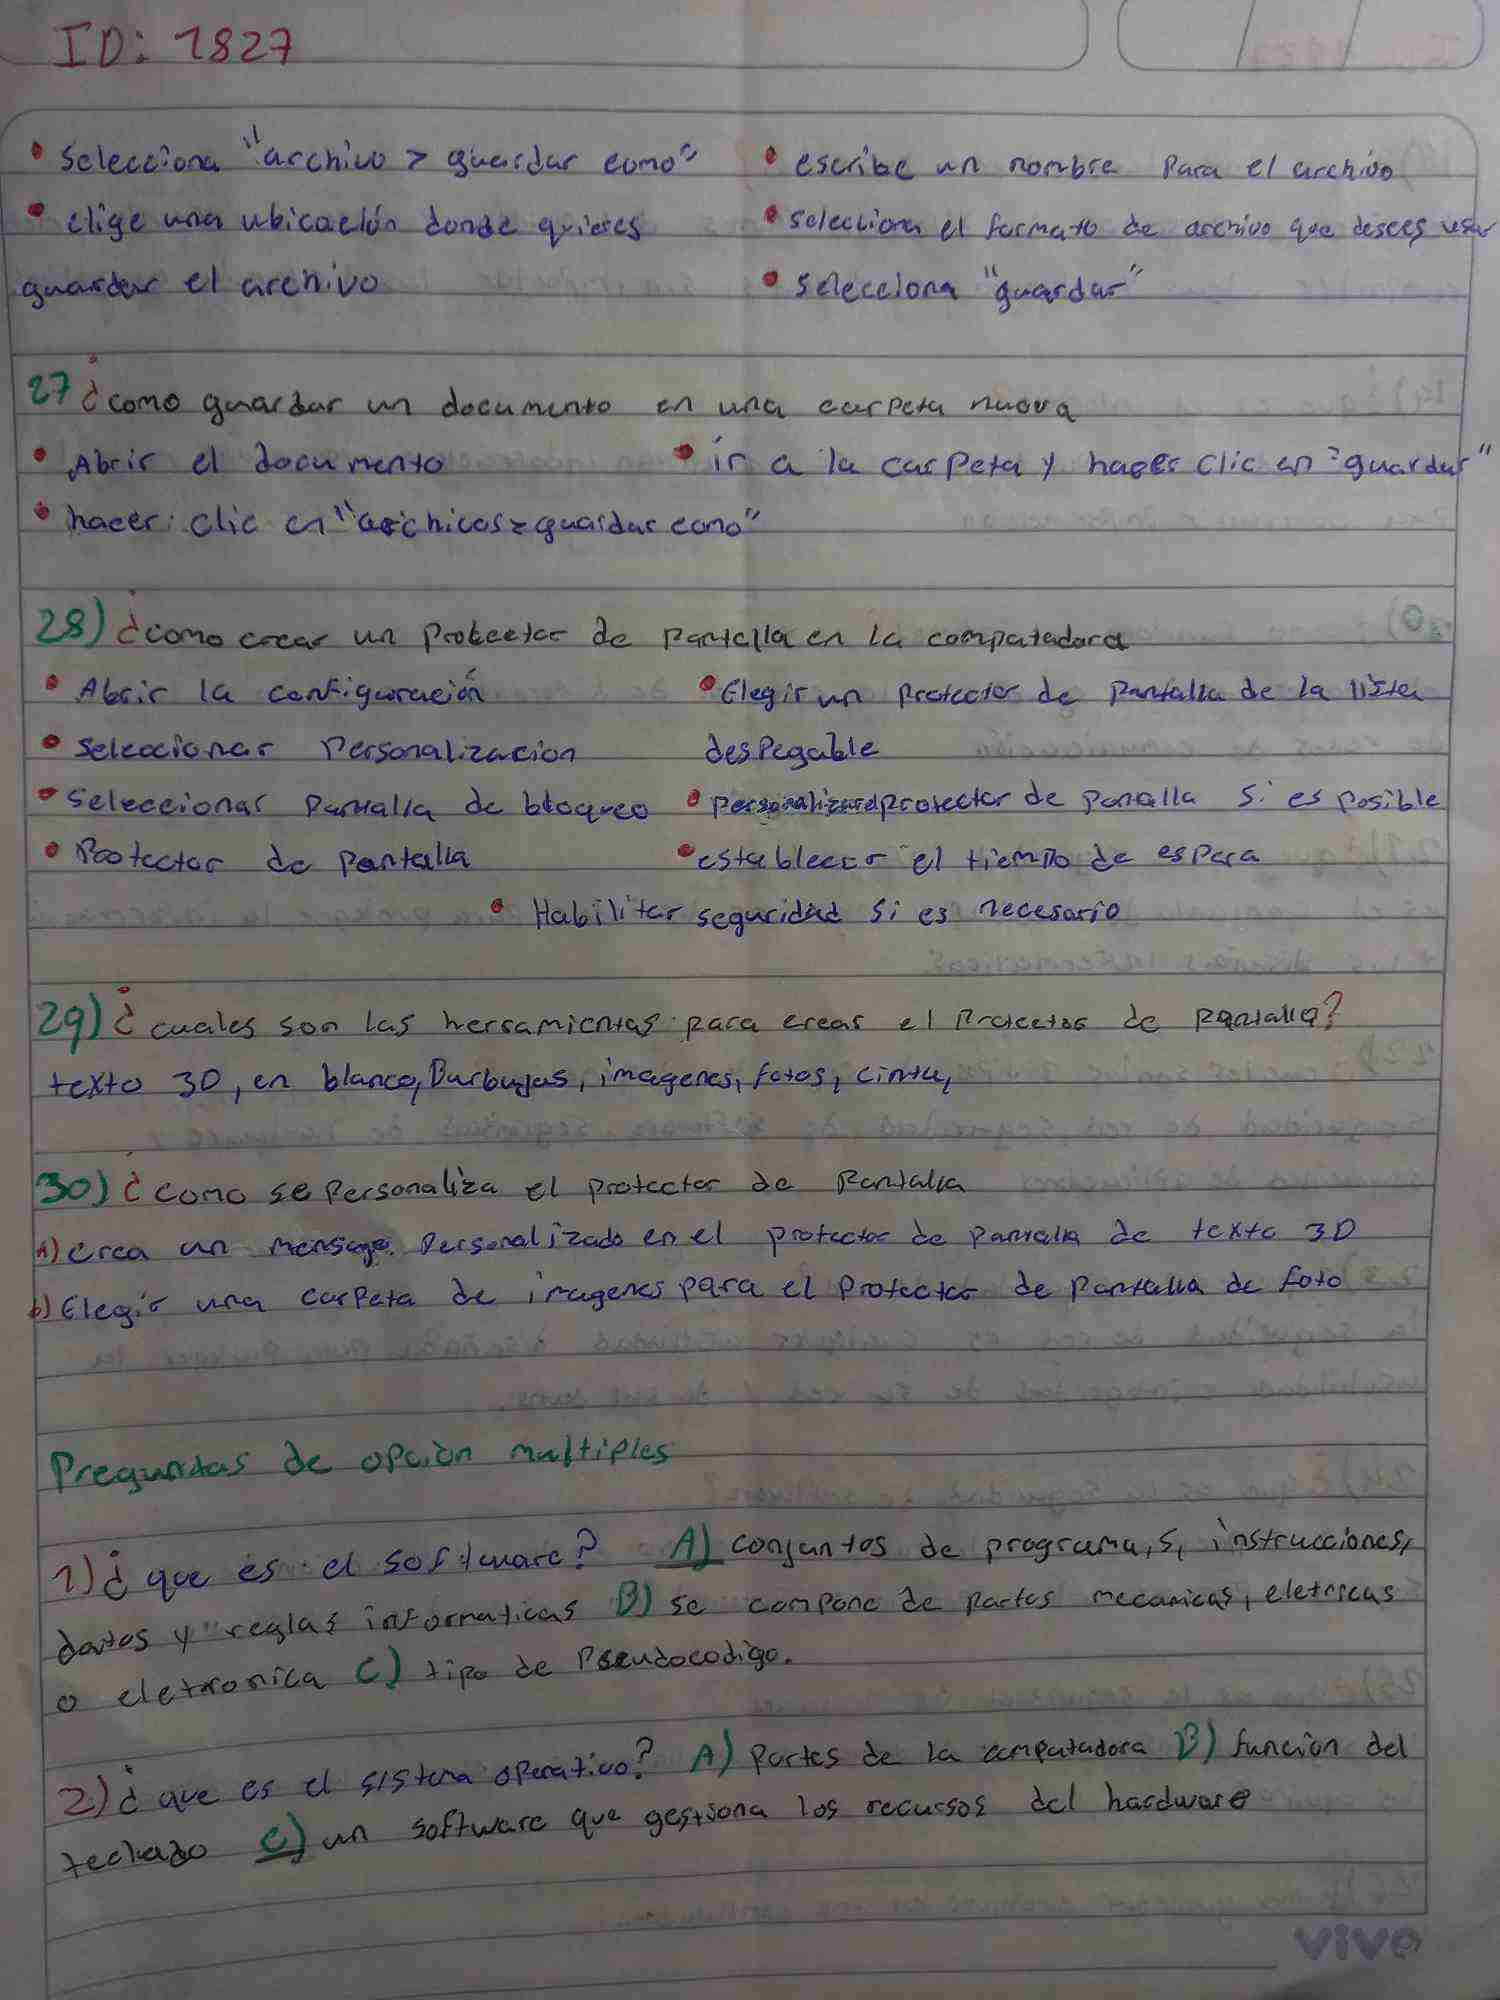 ID: 1827
• Selecciona "archivo > guardar como"
• elige una ubicación donde quieres
guardar el archivo
• escribe un nombre para el archivo
• selecciona el formato de archivo que desees usar
• selecciona "guardar"
27 ¿como guardar un documento en una carpeta nueva
• Abrir el documento
• hacer clic en "archivos > guardar como"
• ir a la carpeta y hacer clic en "guardar"
28) ¿como crear un protector de pantalla en la computadora
• Abrir la configuración
• seleccionar Personalizacion
• seleccionar pantalla de bloqueo
• Protector de pantalla
• Elegir un protector de pantalla de la lista
despegable
• personalizar el protector de panalla si es posible
• establecer el tiempo de espera
• Habilitar seguridad si es necesario
29) ¿cuales son las herramientas para crear el Protector de pantalla?
texto 3D, en blanco, Burbujas, imagenes, fotos, cinta,
30) ¿como se Personaliza el protector de Pantalla
A) crea un mensage. Personalizado en el protector de pantalla de texto 3D
b) Elegir una carpeta de imagenes para el Protector de Pantalla de foto
Preguntas de opción multiples
1) ¿que es el software? A) conjuntos de programa,s, instrucciones,
datos y reglas informaticas B) se compone de partes mecanicas, eletricas
o eletronica C) tipo de Pseudocodigo.
2) ¿que es el sistema operativo? A) Partes de la computadora B) función del
teclado C) un software que gestiona los recursos del hardware
vivo